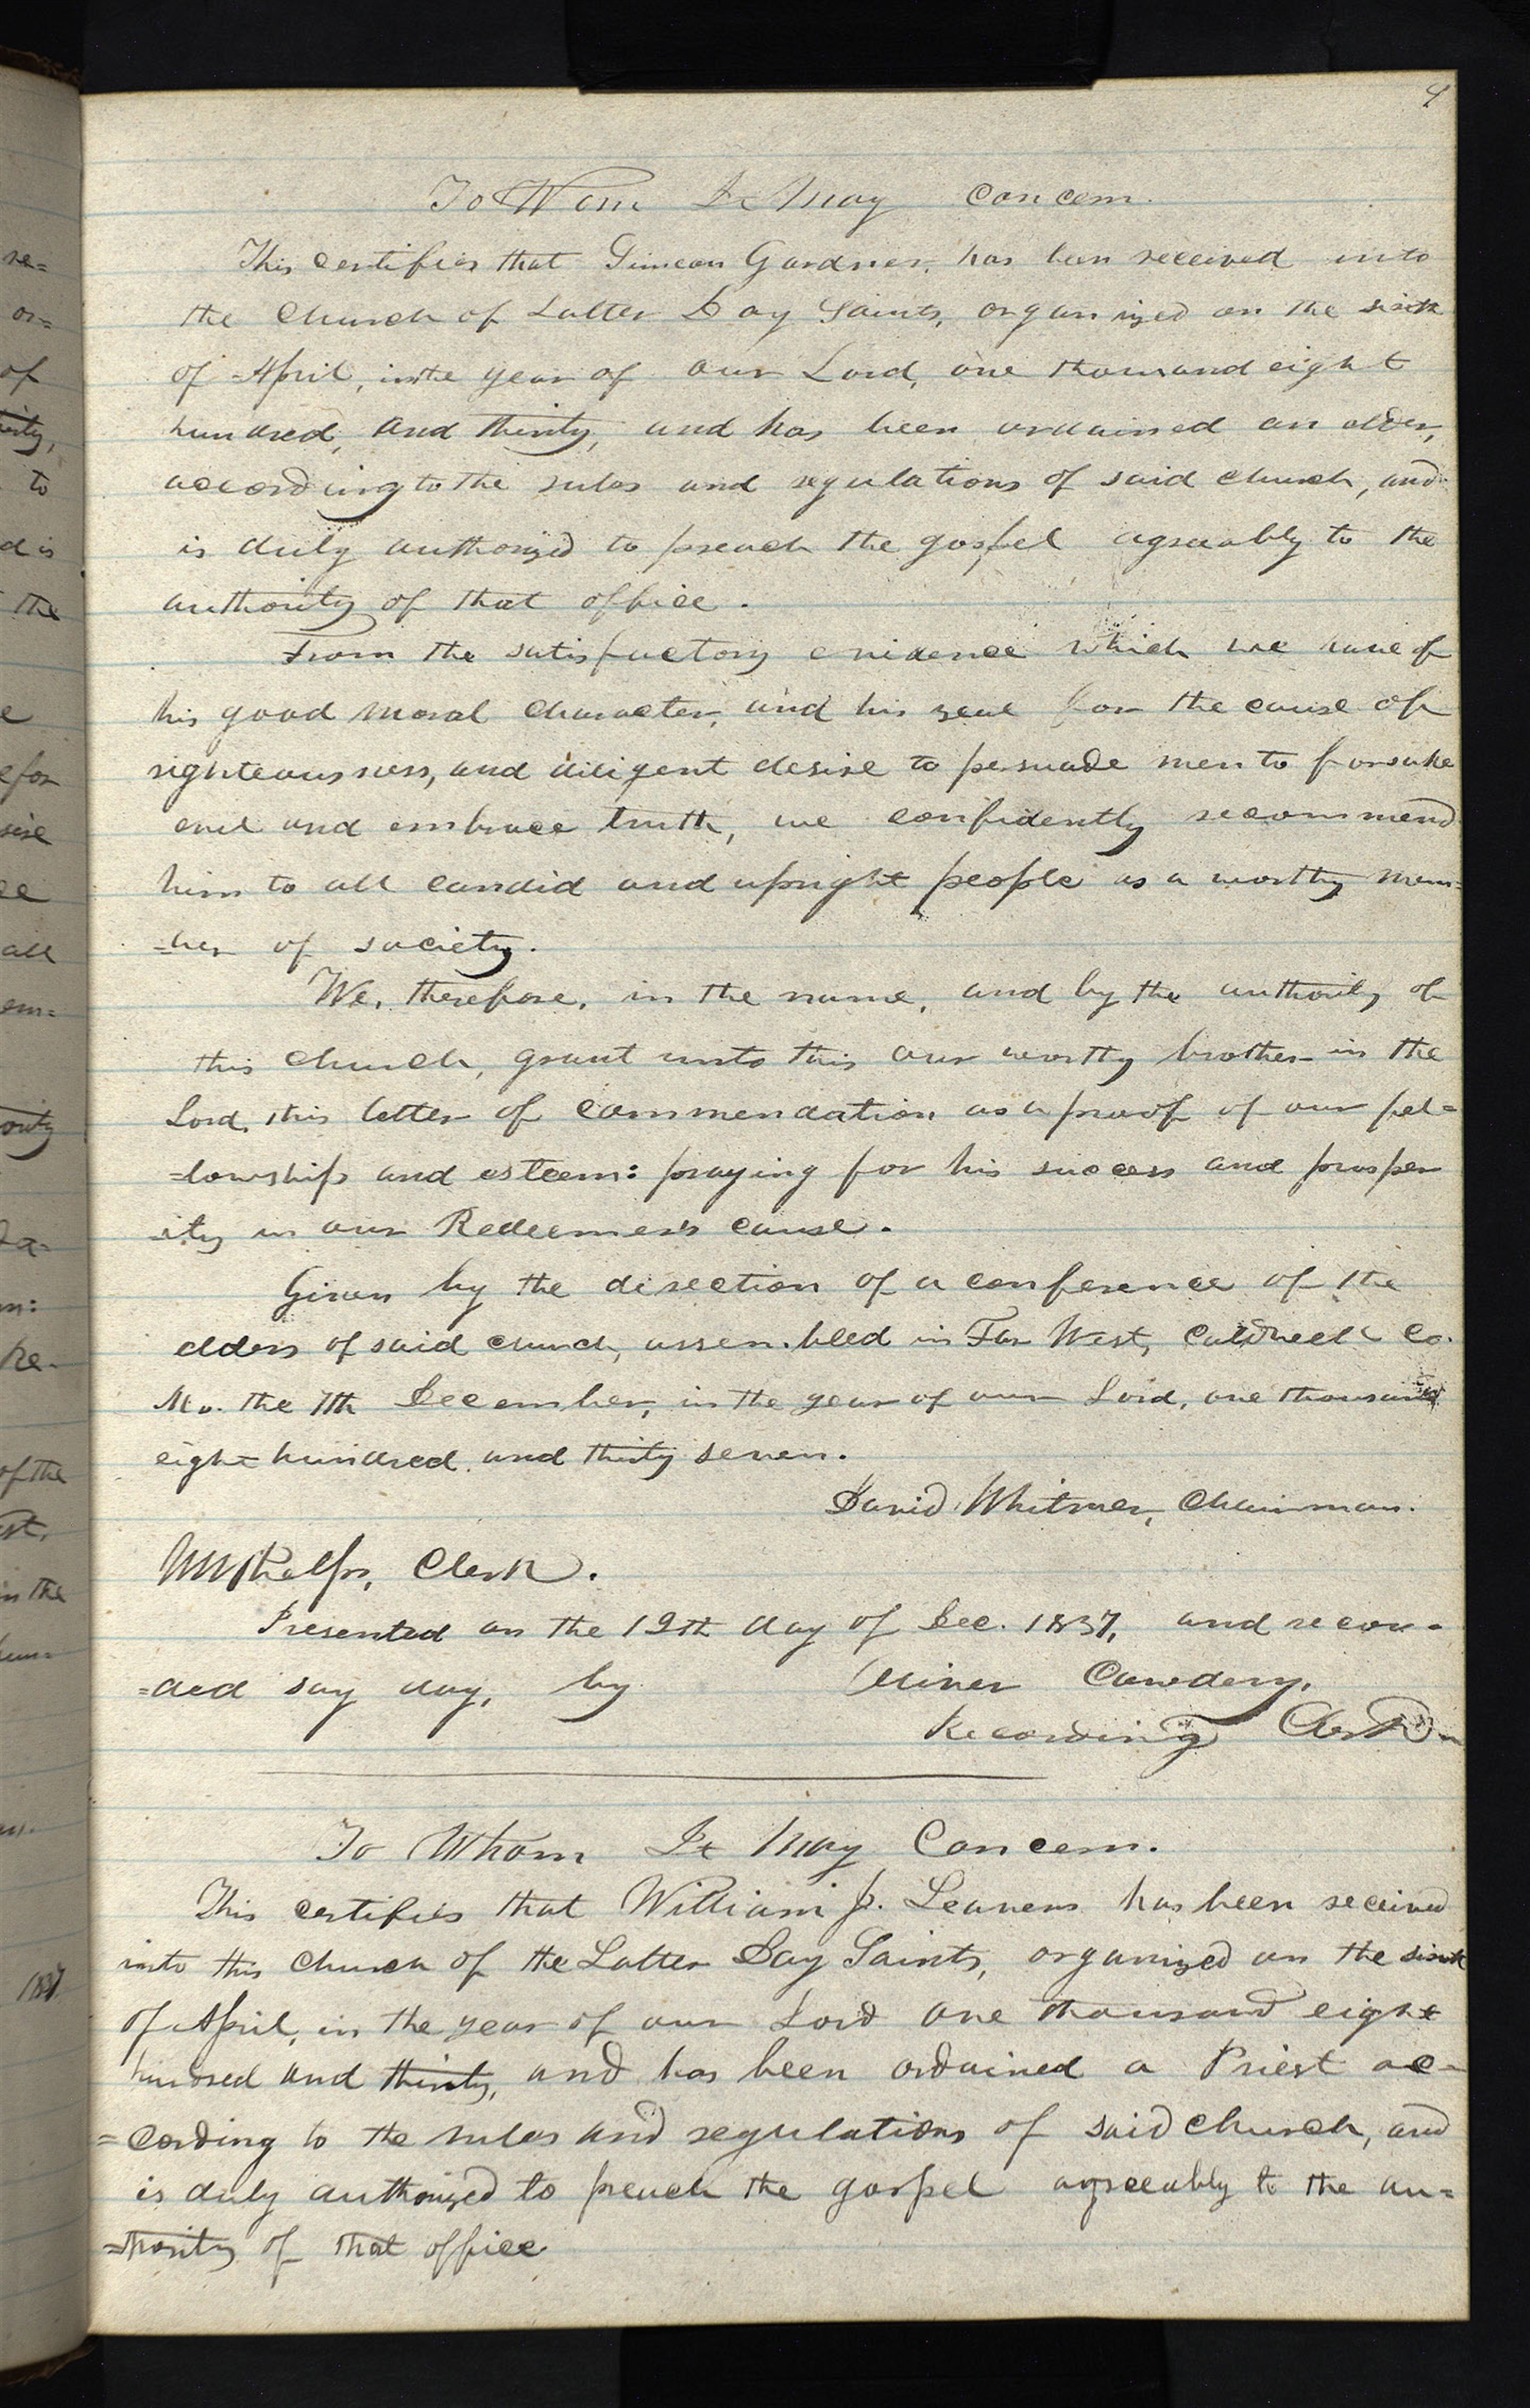 9
To Whom It May Concern.
This certifies that Simeon Gardner, has been received into
the Church of Latter Day Saints, organized on the sixth
of April, in the year of our Lord, one thousand eight
hundred, and thirty, and has been ordained an elder,
according to the rules and regulations of said church, and
is duly authorized to preach the gospel agreeably to the
authority of that office.
From the satisfactory evidence which we have of
his good moral character, and his zeal for the cause of
righteousness, and diligent desire to persuade men to forsake
evil and embrace truth, we confidently recommend
him to all candid and upright people as a worthy mem=
=ber of society.
We, therefore, in the name, and by the authority of
this church, grant unto this our worthy brother in the
Lord, this letter of commendation as a proof of our fel=
=lowship and esteem: praying for his success and prosper
ity in our Redeemer's cause.
Given by the direction of a conference of the
elders of said church, assembled in Far West, Caldwell Co.
Mo. the 7th December, in the year of our Lord, one thousand
eight hundred and thirty seven.
David Whitmer, Chairman.
W W Phelps, Clerk.
Presented on the 12th day of Dec. 1837, and recor=
=ded say day, by Oliver Cowdery,
Recording Clerk
To Whom It May Concern.
This certifies that William J. Leavens has been received
into this Church of the Latter Day Saints, organized on the sixth
of April, in the year of our Lord one thousand eight
hundred and thirty, and has been ordained a Priest ac=
=cording to the rules and regulations of said church, and
is duly authorized to preach the gospel agreeably to the au=
=thority of that office